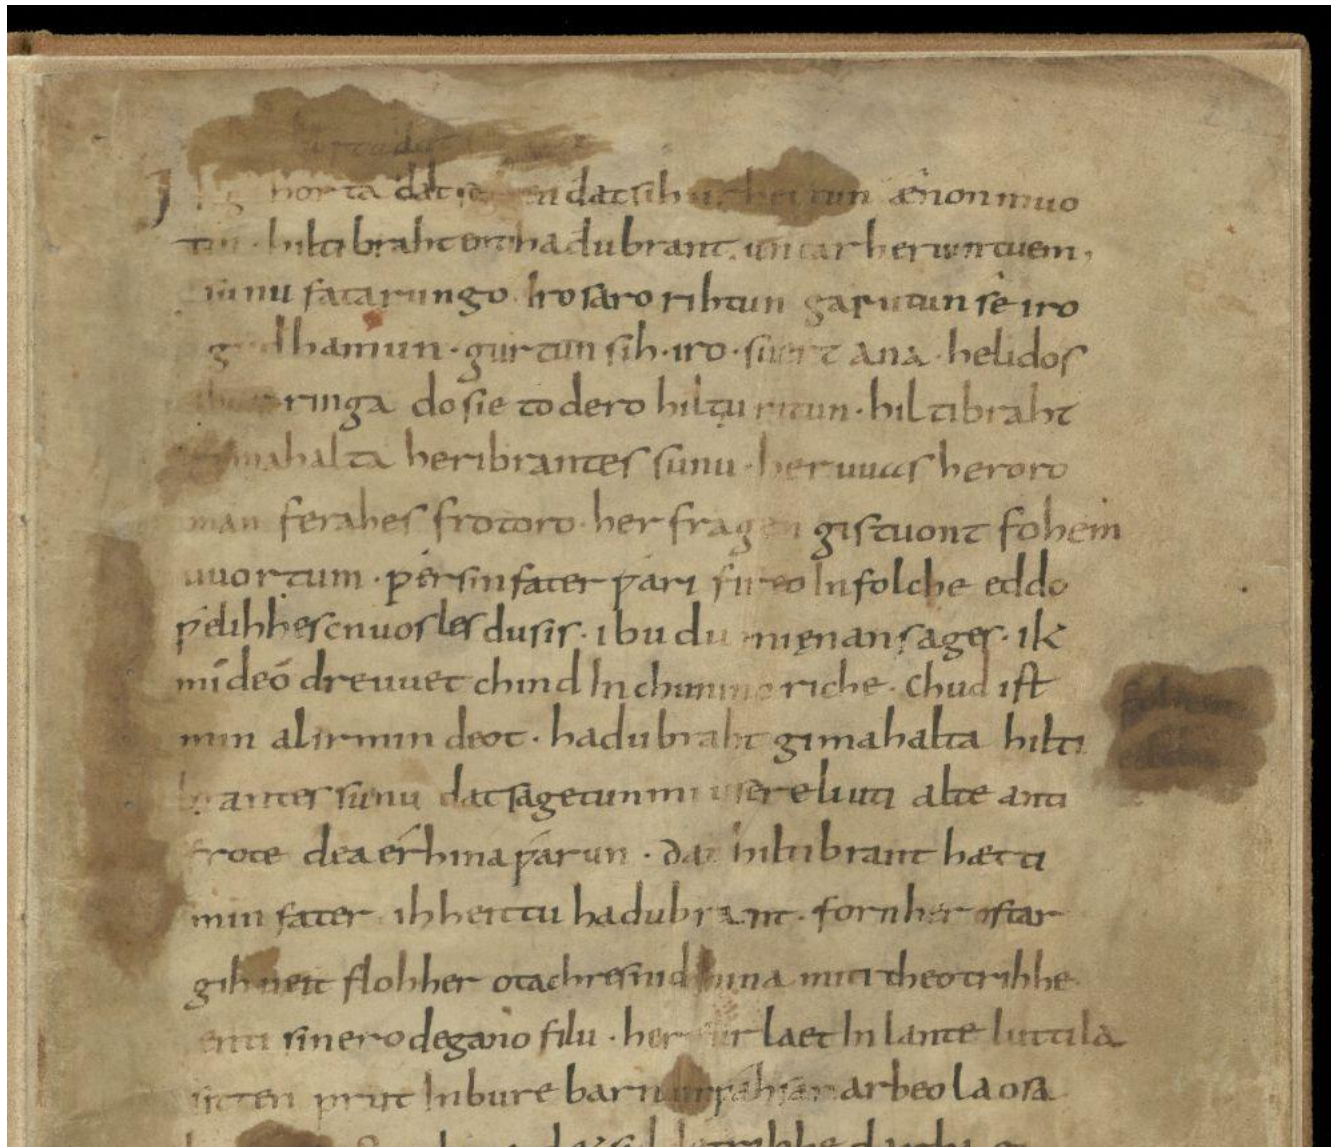 Ik gihorta dat seggen dat sih urhettun ænon muo
tin · hiltibraht enti hadubrant · untar heriun tuem ·
sunu fatarungo · iro saro rihtun garutun se iro
gudhamun · gurtun sih · iro · suert ana · helidos
ringa do sie to dero hiltu ritun · hiltibraht
gimahalta heribrantes sunu · her uuas heroro
man ferahes frotoro · her fragen gistuont fohem
uuortum · ƿer sin fater ƿari fireo In folche eddo
ƿelihhes cnuosles du sis · ibu du mi ęnan sages · ik
mi deo dre uuet chind In chunincriche · Chud ist
min al irmin deot · hadubraht gimahalta hilti
brantes sunu dat sagetun mi usere liuti alte anti
frote dea érhina ƿarun · dat hiltibrant hætti
min fater · ih heittu hadubrant · forn her ostar
gihueit floh her otachres nid hina miti theotrihhe
enti sinero degano filu · her furlaet In lante luttila
sitten prut In bure barn unƿahsan arbeo laosa